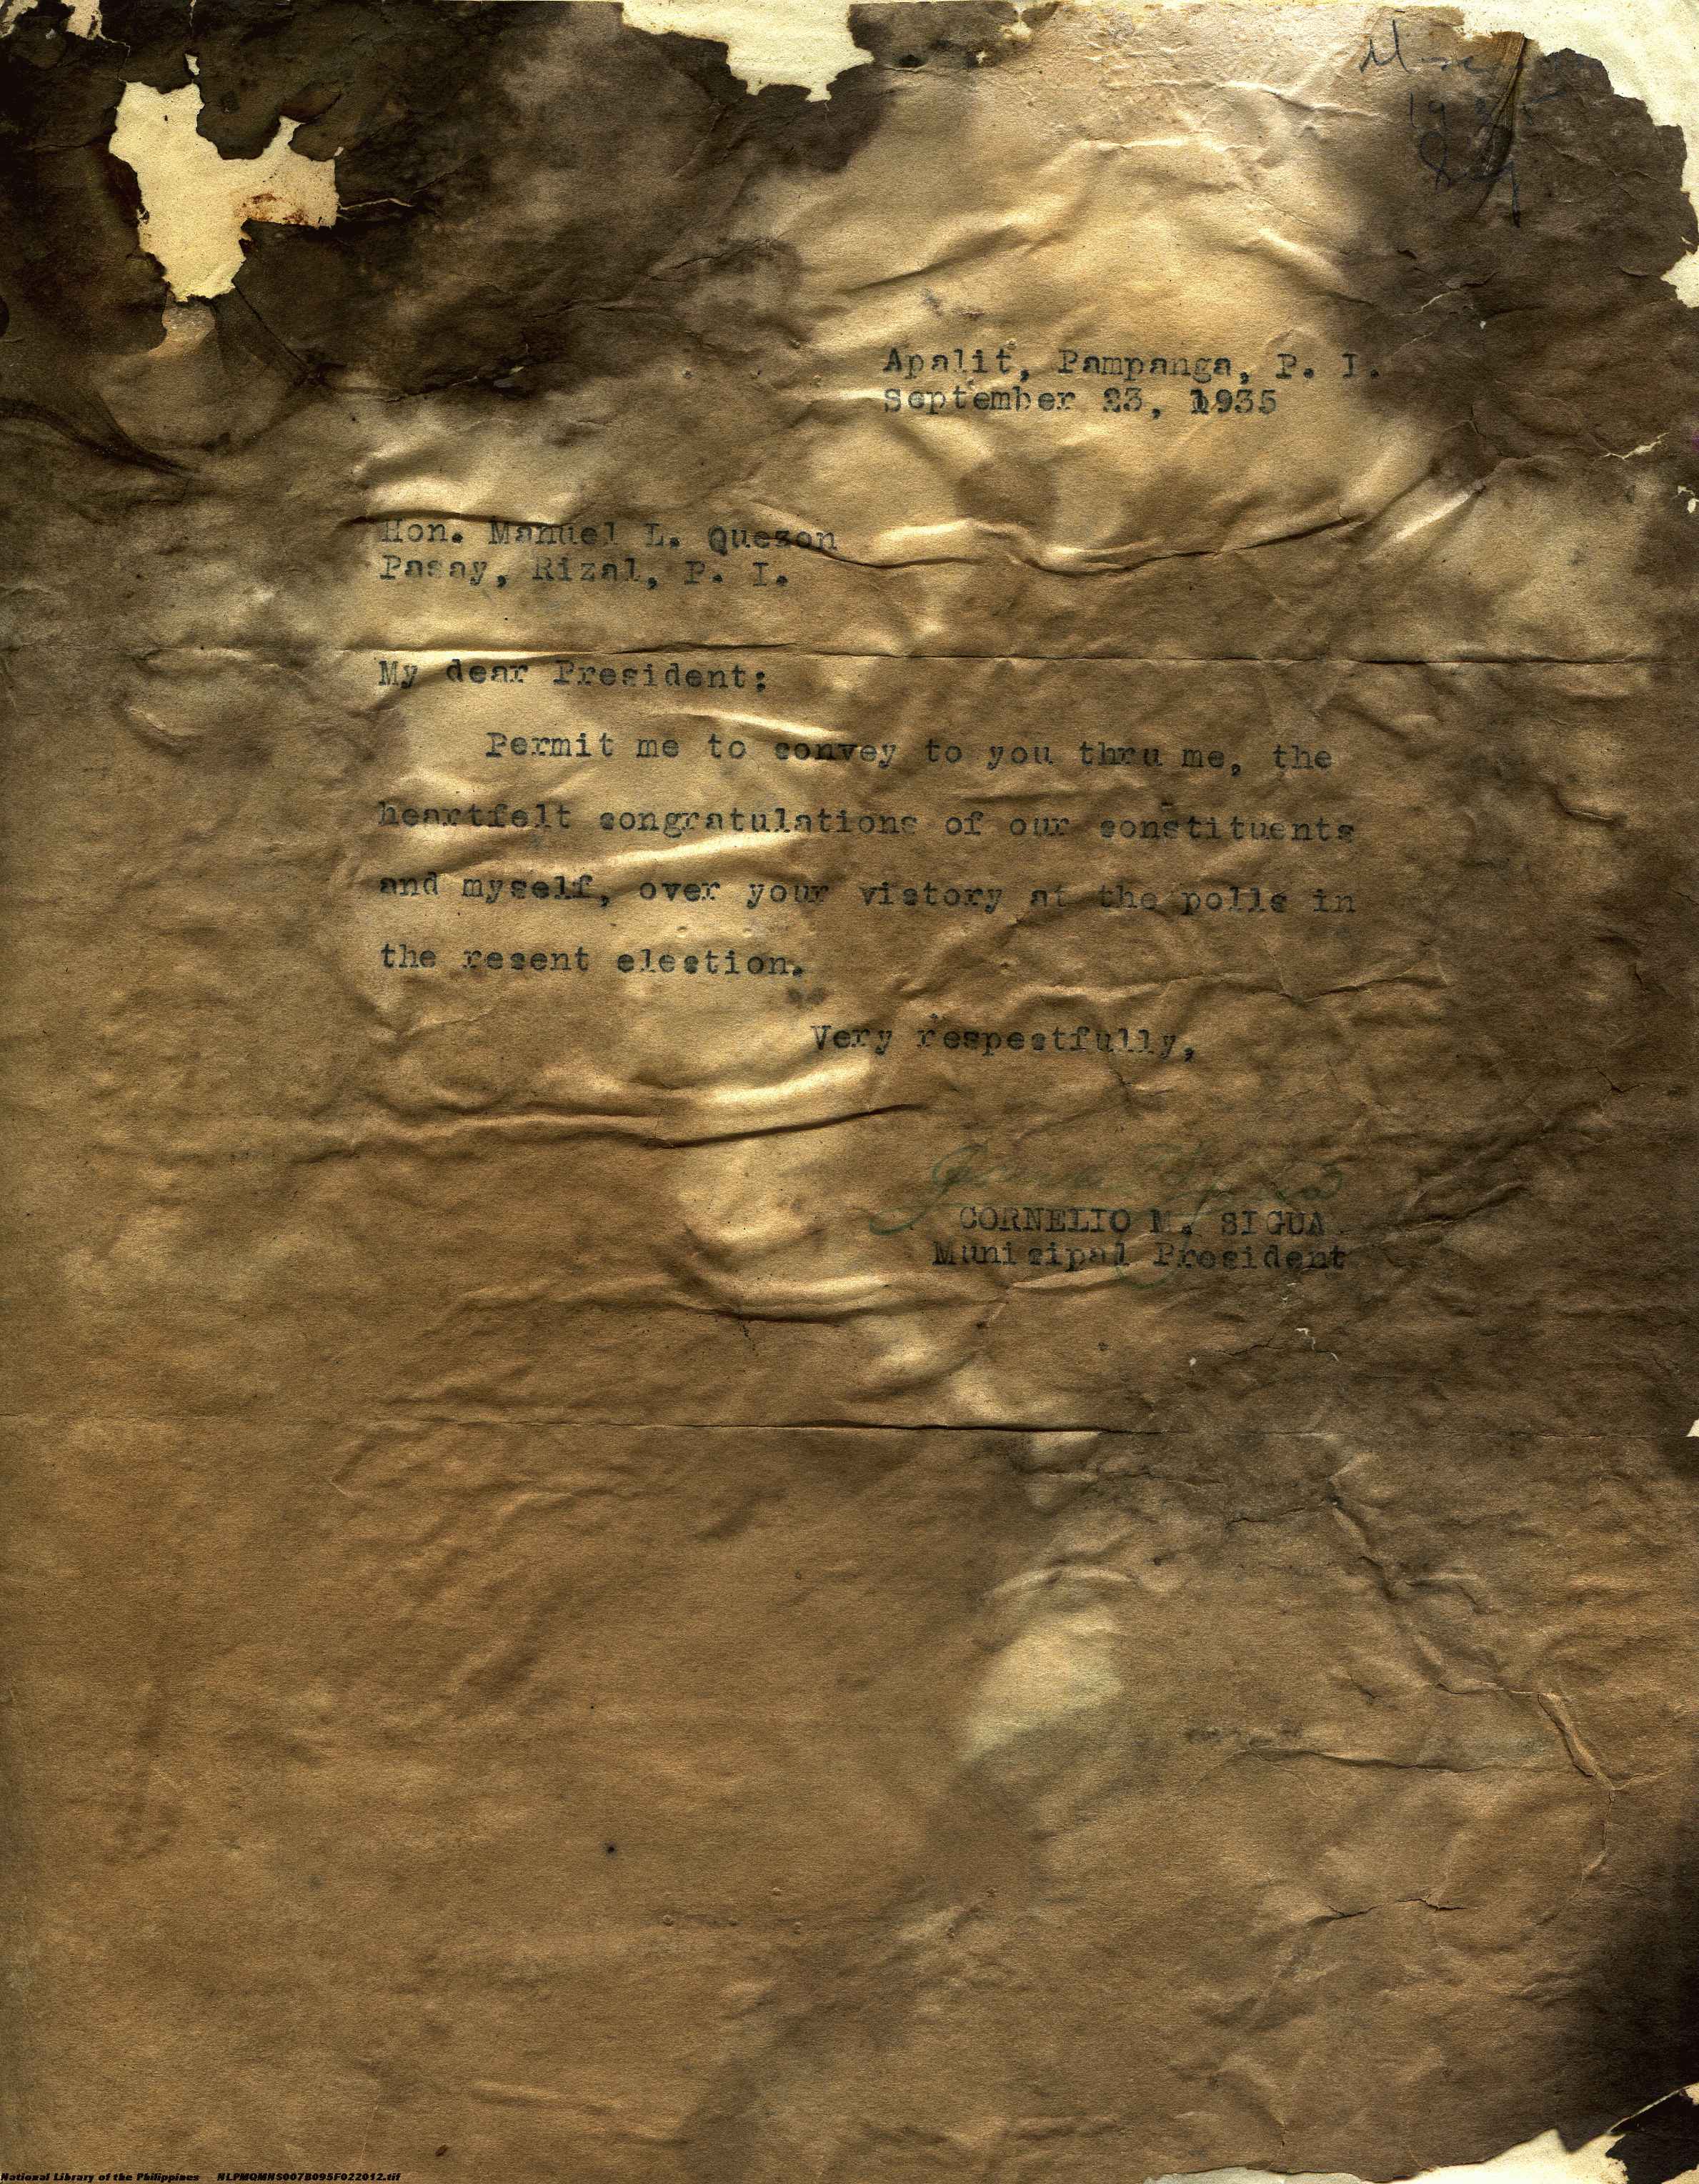 Misc
1935
Apalit, Pampanga, P. I.
September 23, 1935
Hon. Manuel L. Quezon
Pasay, Rizal, P. I.
My dear President:
Permit me to convey to you thru me, the
heartfelt congratulations of our constituents
and myself, over your victory at the polls in
the recent election.
Very respectfully,
CORNELIO M. SIGUA
Municipal President
National Library of the Philippines NLPMQMNS007B095F022012.tif